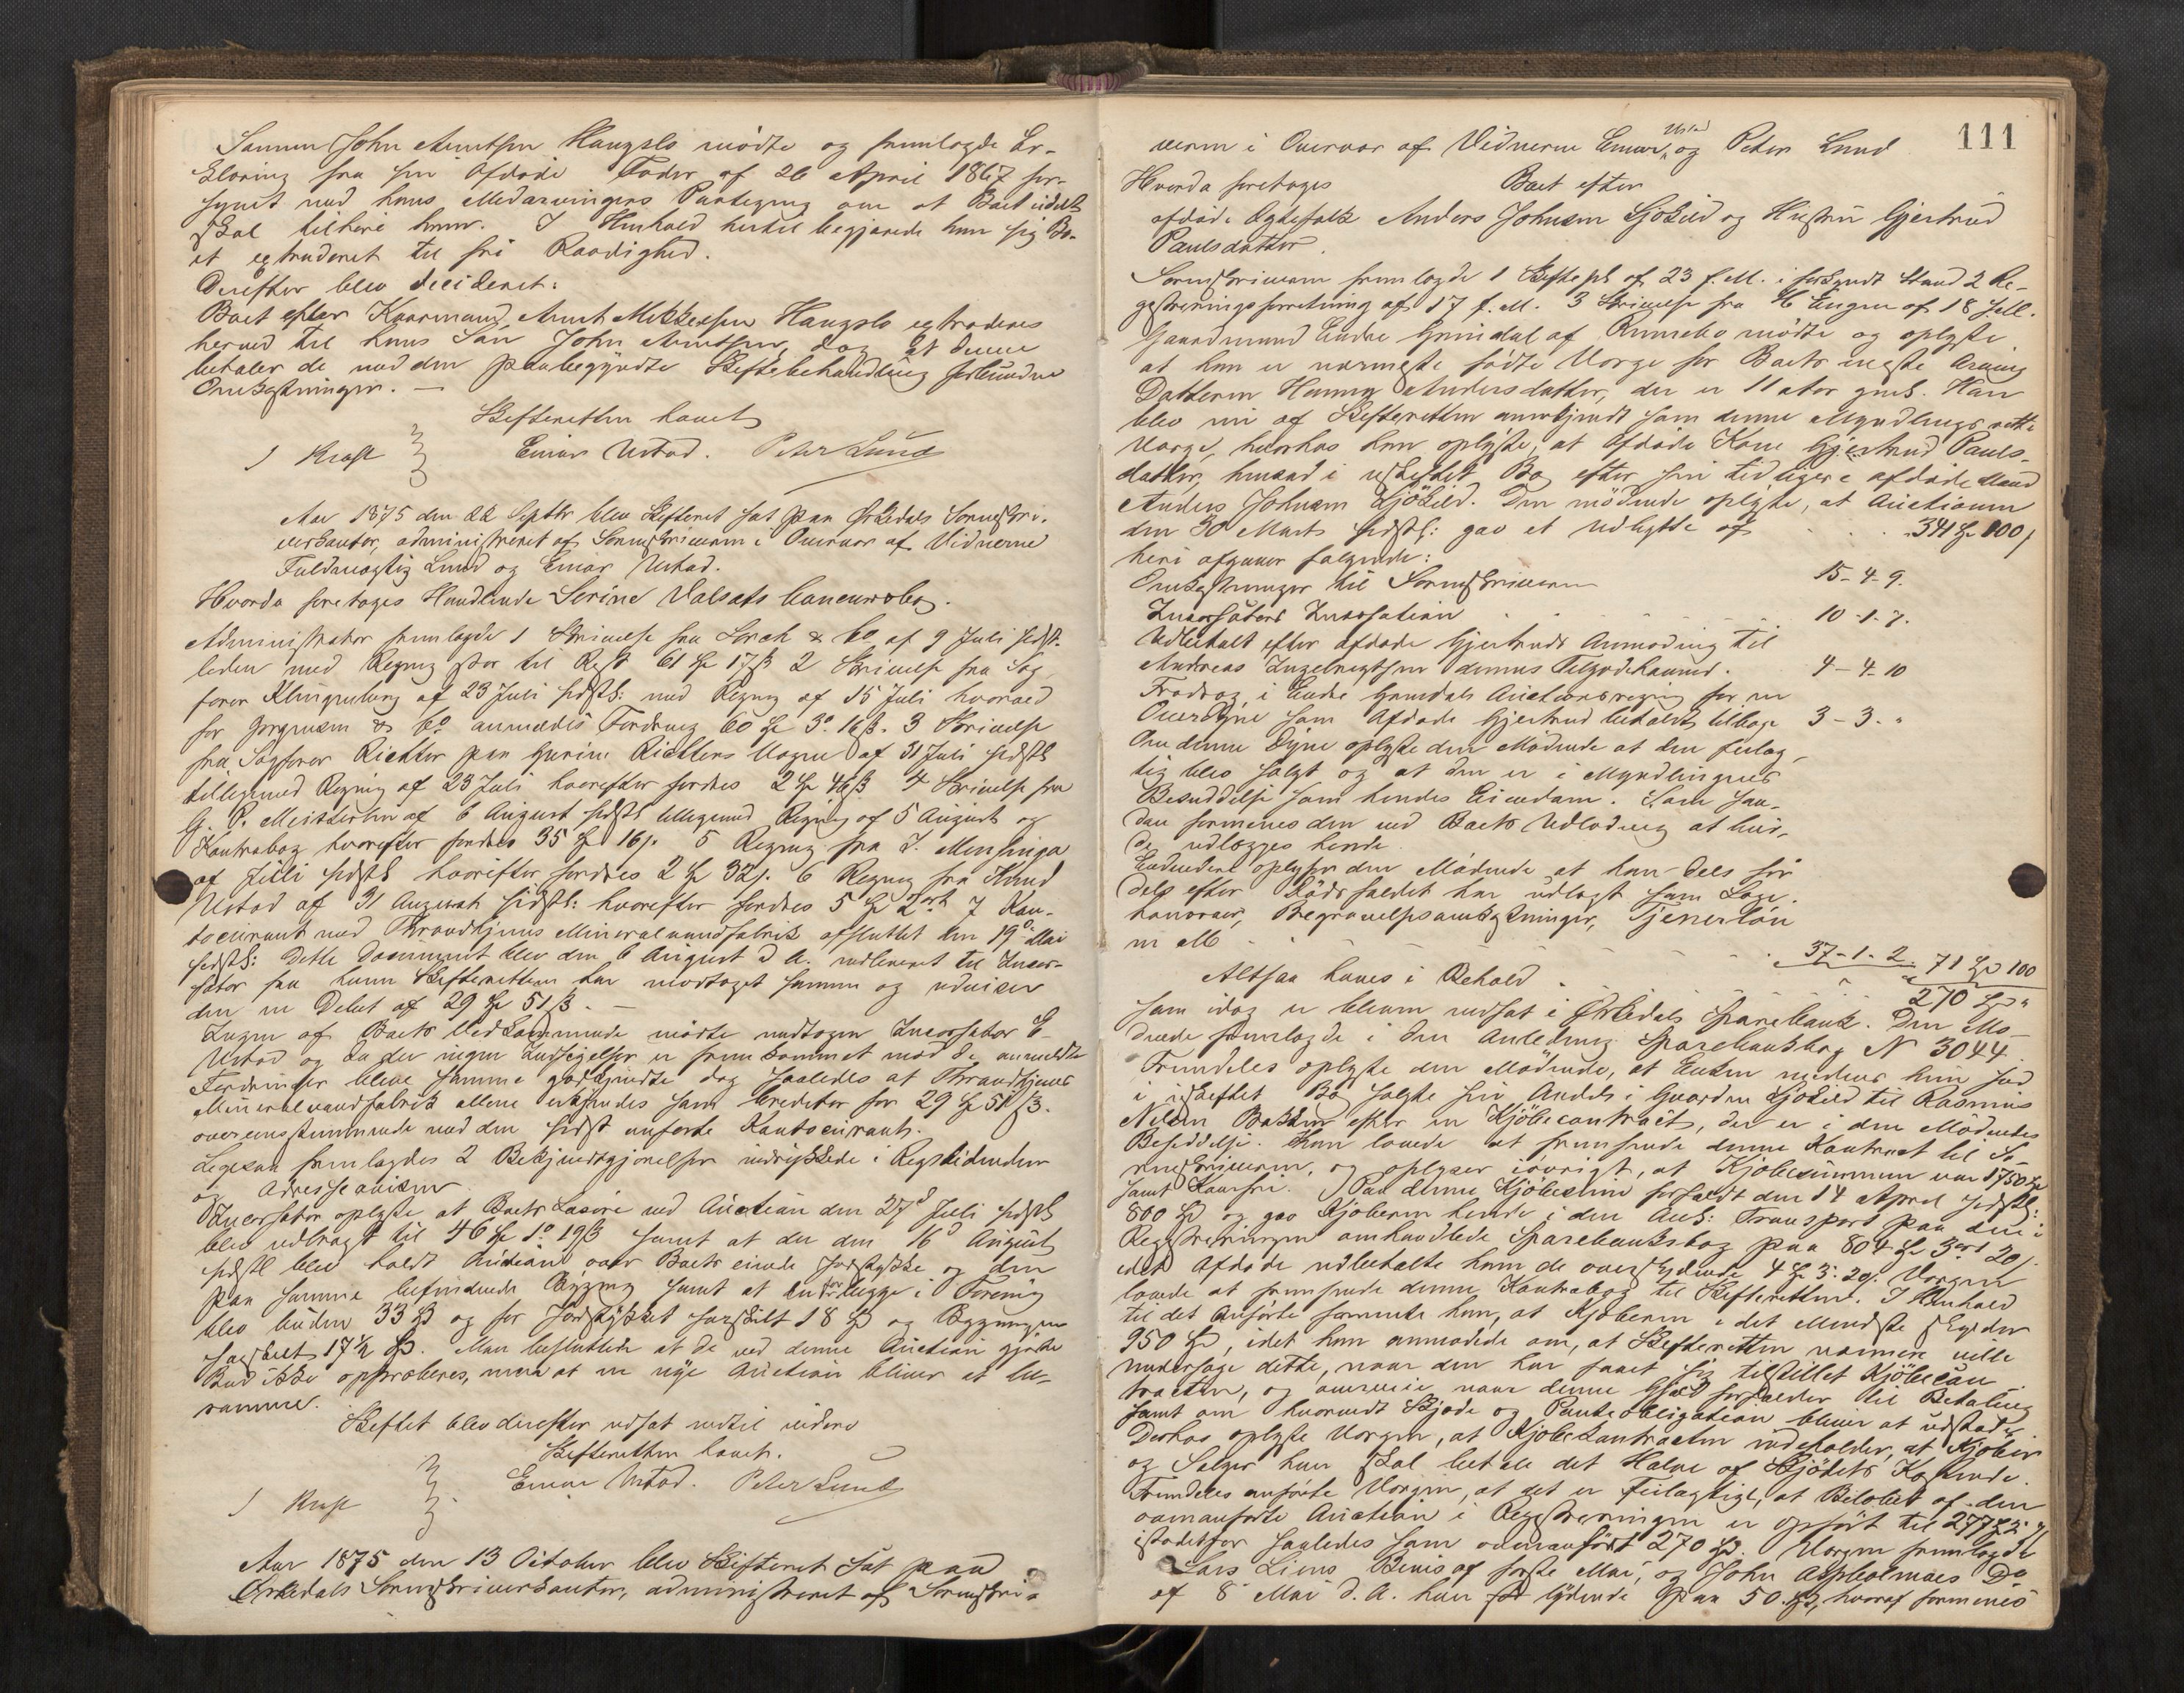 Sønnen John Arntsen Haugslo mødte og fremlagde Er-
klæring fra sin afdøde Fader af 26 April 1867 for-
synet med hans Medarvingers Paategning om at Boet udelt
skal tilhøre ham. I Henhold hertil begjærede han sig Bo-
et extraderet til fri Raadighed.
Derefter blev decideret:
Boet efter Kaarmand Arnt Mikkelsen Haugslo extraderes
herved til hans Søn John Arntsen, dog at denne
betaler de med den paabegyndte Skiftebehandling forbundne
Omkostninger. —
Skifteretten hævet
J Kraft Einar Ustad. Peter Lund
Aar 1875 den 22 Septbr blev Skifteret sat paa Ørkedals Sorenskri-
verkontor, administreret af Sorenskriveren i Overvær af Vidnerne
Fuldmægtig Lund og Einar Ustad.
Hvorda foretoges Handlende Serine Valsøts Concursbo.
Administrator fremlagde 1 Skrivelse fra Lorck & Co af 9 Juli sidst-
leden med Regning stor til Rest 61 Spd 17 ß 2 Skrivelse fra Sag-
fører Klingenberg af 23 Juli sidstl: med Regning af 15 Juli hvorved
for Jørgensen & Co anmeldes Fordring 60 Spd 3o 16 ß. 3 Skrivelse
fra Sagfører Richter paa Gurine Richters Vegne af 31 Juli sidstl
tilligemed Regning af 23 Juli hvorefter fordres 2 Spd 46 ß 4 Skrivelse fra
G. P. Meisterlin af 6 August sidstl tilligemed Regning af 5 August og
Kontrabog hvorefter fordres 35 Spd 16 ß. 5 Regning fra J. Mensinga
af Juli sidstl hvorefter fordres 2 Spd 32 ß. 6 Regning fra
Ustad af 31 August sidstl: hvorefter fordres 5 Spd 2 ort 7 Kon-
tocurant med Throndhjems Mineralvandfabrik afsluttet den 19de Mai
sidstl: Dette Document blev den 6 August d A. udleveret til Incas-
sator fra hvem Skifteretten har modtaget samme og udviser
den en Debet af 29 Spd 51 ß. —
Ingen af Boets Vedkommende mødte undtagen Incassator E.
Ustad og da der ingen Indsigelser er fremkommet mod de anmeldte
Fordringer bleve samme godkjendte dog saaledes at Throndhjems
Mineralvandfabrik allene erkjendes som Creditor for 29 Spd 51 ß.
overensstemmende med den sidst anførte Kontocurant.
Ligesaa fremlagdes 2 Bekjendtgjørelser indrykkede i Rigstidenden
og Adresseavisen
Incassator oplyste at Boets Løsøre ved Auction den 27de Juli sidstl
blev udbragt til 46 Spd 1o 19 ß samt at der den 16de August
sidstl blev holdt Auction over Boets eiende Jordstykke og den
paa samme befindende Bygning samt at der for begge i Forening
blev buden 33 Spd og for Jordstykket særskilt 18 Spd og Bygningen
særskilt 17½ Spd. Man besluttede at de ved denne Auction gjorte
Bud ikke approberes, men at en ny Auction bliver at be-
ramme.
Skiftet blev derefter udsat indtil videre
Skifteretten hævet.
J Kraft Einar Ustad. Peter Lund
Aar 1875 den 13 October blev Skifteret sat paa
Ørkedals Sorenskriverkontor, administreret af Sorenskri-
111
veren i Overvær af Vidnerne Einar Ustad og Peter Lund
Hvorda foretoges Boet efter
afdøde Ægtefolk Anders Johnsen Sjøkild og Hustru Gjertrud
Paulsdatter.
Sorenskriveren fremlagde 1 af 23 f. M. i forkyndt Stand 2 Re-
gistreringsforretning af 17 f. M. 3 Skrivelse fra H Engen af 18 f. M.
Gaardmand Endre Grindal af Rennebo mødte og oplyste
at han er nærmeste fødte Værge for Boets eneste Arving
Datteren Hanna Andersdatter, der er 11 Aar gml. Han
blev nu af Skifteretten anerkjendt som denne Myndlings rette
Værge, hvorhos han oplyste, at Afdøde Kone Gjertrud Pauls-
datter, hensad i uskiftet Bo efter sin tidligere afdøde Mand
Anders Johnsen Sjøkild. Den mødende oplyste, at Auctionen
den 30 Marts sidstl: gav et Udbytte af . . . 341 Spd 100 ß
heri afgaaer følgende:
Omkostninger til Sorenskriveren 15-4-9.
Incassators Incassation 10-1-7.
Udbetalt efter afdøde Gjertruds Anmodning til
Andreas Ingebrigtsen dennes Tilgodehavend. 4-4-10
Fradrag i Endre Grindals Auctionsregning for en
Overdyne som Afdøde Gjertrud beholdt tilbage 3-3-"
Om denne Dyne oplyste den Mødende at den feilag-
tig blev solgt og at den er i Myndlingens
Besiddelse som hendes Eiendom. Som saa-
dan formenes den ved Boets Udlodning at bur-
de udlægges hende.
Endvidere oplyser den Mødende at han dels før
dels efter Dødsfaldet har udlagt som Læge-
honorar, Begravelsesomkostninger, Tjenerløn
m M . . . 37-1-2. 71 Spd 100
Altsaa haves i Behold . . . 270 Spd "
som idag er bleven indsat i Ørkedals Sparebank. Den Mø-
dende fremlagde i den Anledning Sparebanksbog N 3044.
Fremdeles oplyste den Mødende, at Enken medens hun sad
i uskiftet Bo solgte sin Andel i Gaarden Sjøkild til Rasmus
Nilsen Bakken efter en Kjøbecontract, der er i den Mødendes
Besiddelse. Han lovede at fremsende denne Kontract til So-
renskriveren, og oplyser iøvrigt, at Kjøbesummen var 1750 Spd
samt Kaarfri. Paa denne Kjøbesum forfaldt den 14 April sidstl:
800 Spd og gav Kjøberen hende i den Anl: Transport paa den i
Registreringen omhandlede Sparebanksbog paa 804 Spd 3 ort 20 ß.
idet Afdøde udbetalte ham de overskydende 4 Spd 3. 20 ß. Værgen
lovede at fremsende denne Kontrabog til Skifteretten. I Henhold
til det Anførte formente han, at Kjøberen i det Mindste skylder
950 Spd, idet han anmodede om, at Skifteretten nærmere vilde
undersøge dette, naar den har faaet sig tilstillet Kjøbecon-
tracten, og naar denne Gjæld forfalder til Betaling
samt om hvorvidt Skjøde og Panteobligation bliver at udstæde.
Derhos oplyste Værgen, at Kjøbekontracten indeholder, at Kjøber
og Sælger hver skal betale det Halve af Skjødets Kostende.
Fremdeles anførte Værgen, at det er Feilagtigt, at Beløbet af den
ovenanførte Auction i Registreringen er opført til 277
istedetfor saaledes som ovenanført 270 Spd. Værgen fremlagde
Lars Liens Bevis af første Mai, og John Do
af 8 Mai d. A. hver lydende paa 50 Spd, hvoraf formenes